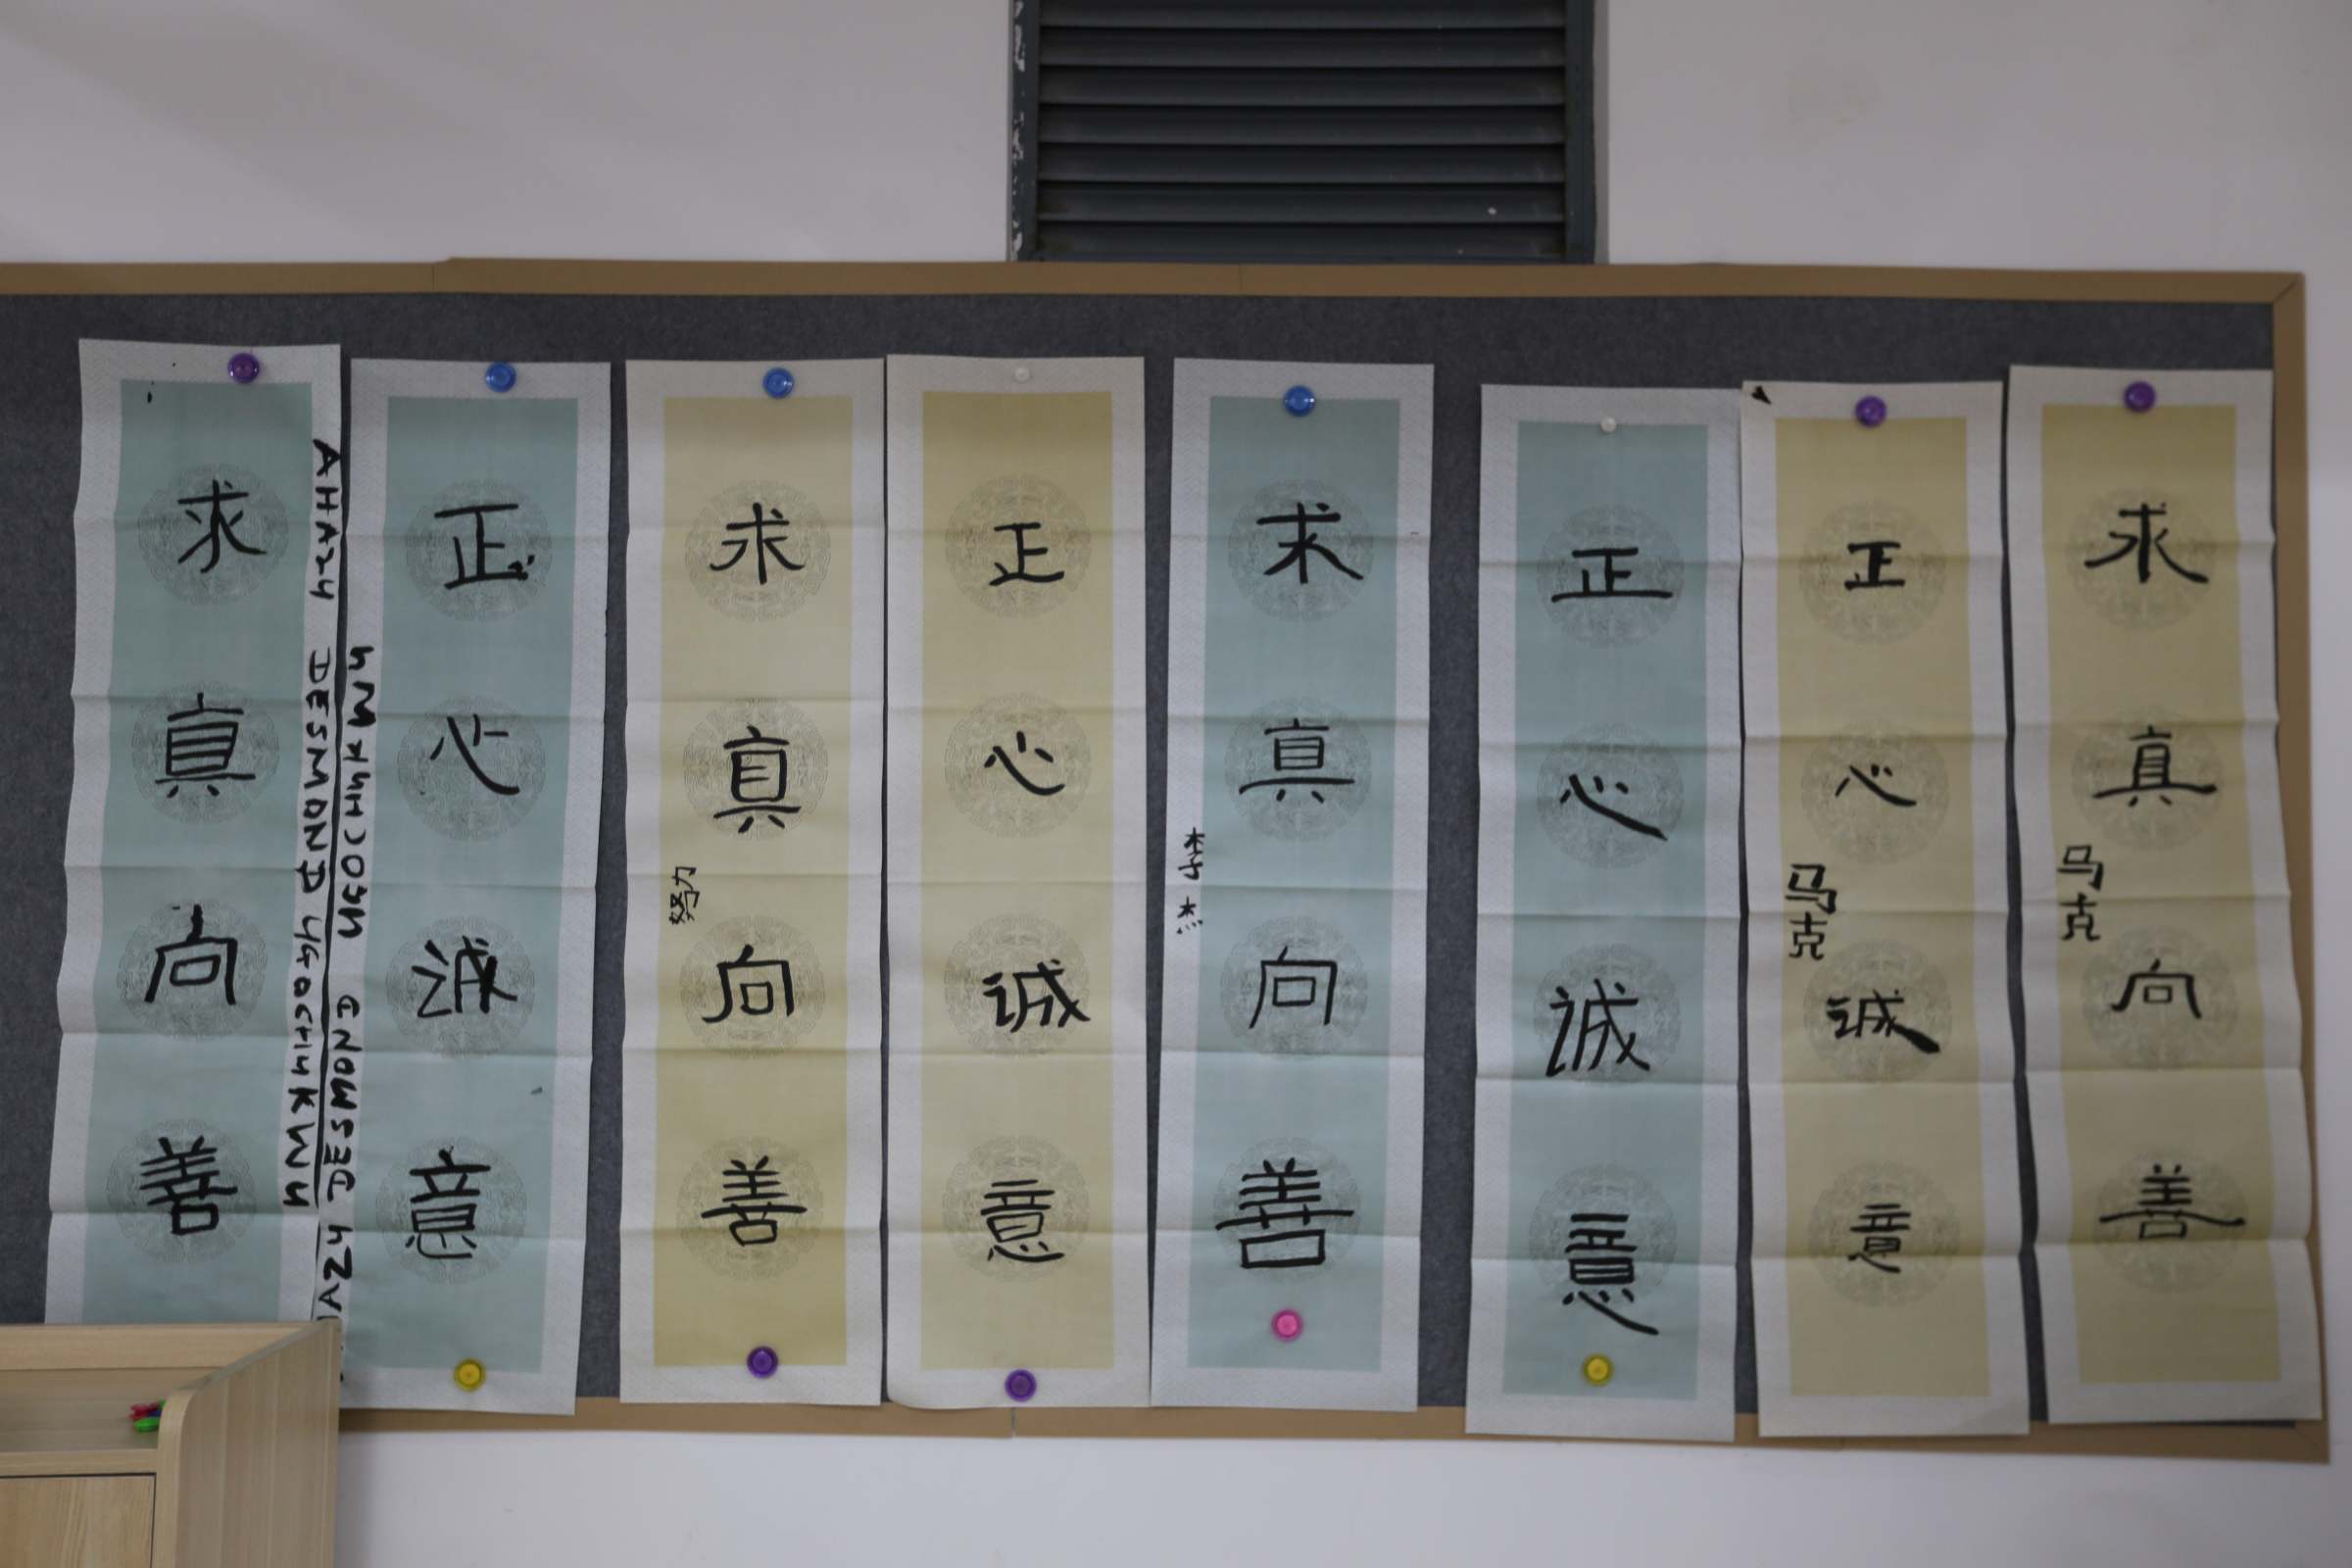 求真向善
正心诚意
求真向善
努力
正心诚意
求真向善
李杰
正心诚意
正心诚意
马克
求真向善
马克